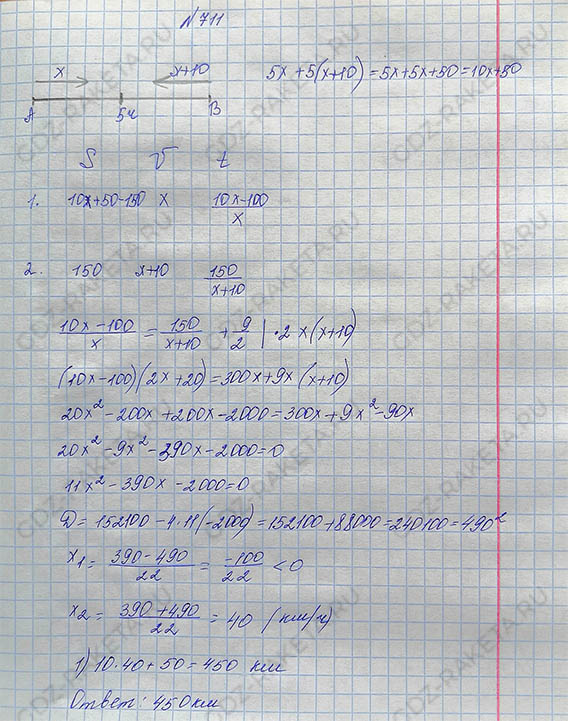 №711
x x+10 5x+5(x+10)=5x+5x+50=10x+50
A 5ч B
S V t
1. 10x+50-150 x 10x-100/x
2. 150 x+10 150/x+10
10x-100/x = 150/x+10 + 9/2 | ·2x(x+10)
(10x-100)(2x+20)=300x+9x(x+10)
20x²-200x+200x-2000=300x+9x²-90x
20x²-9x²-390x-2000=0
11x²-390x-2000=0
D=152100-4·11(-2000)=152100+88000=240100=490²
x₁= 390-490/22 = -100/22 <0
x₂= 390+490/22 = 40 (км/ч)
1) 10·40+50=450 км
Ответ: 450км
GDZ-RAKETA.RU